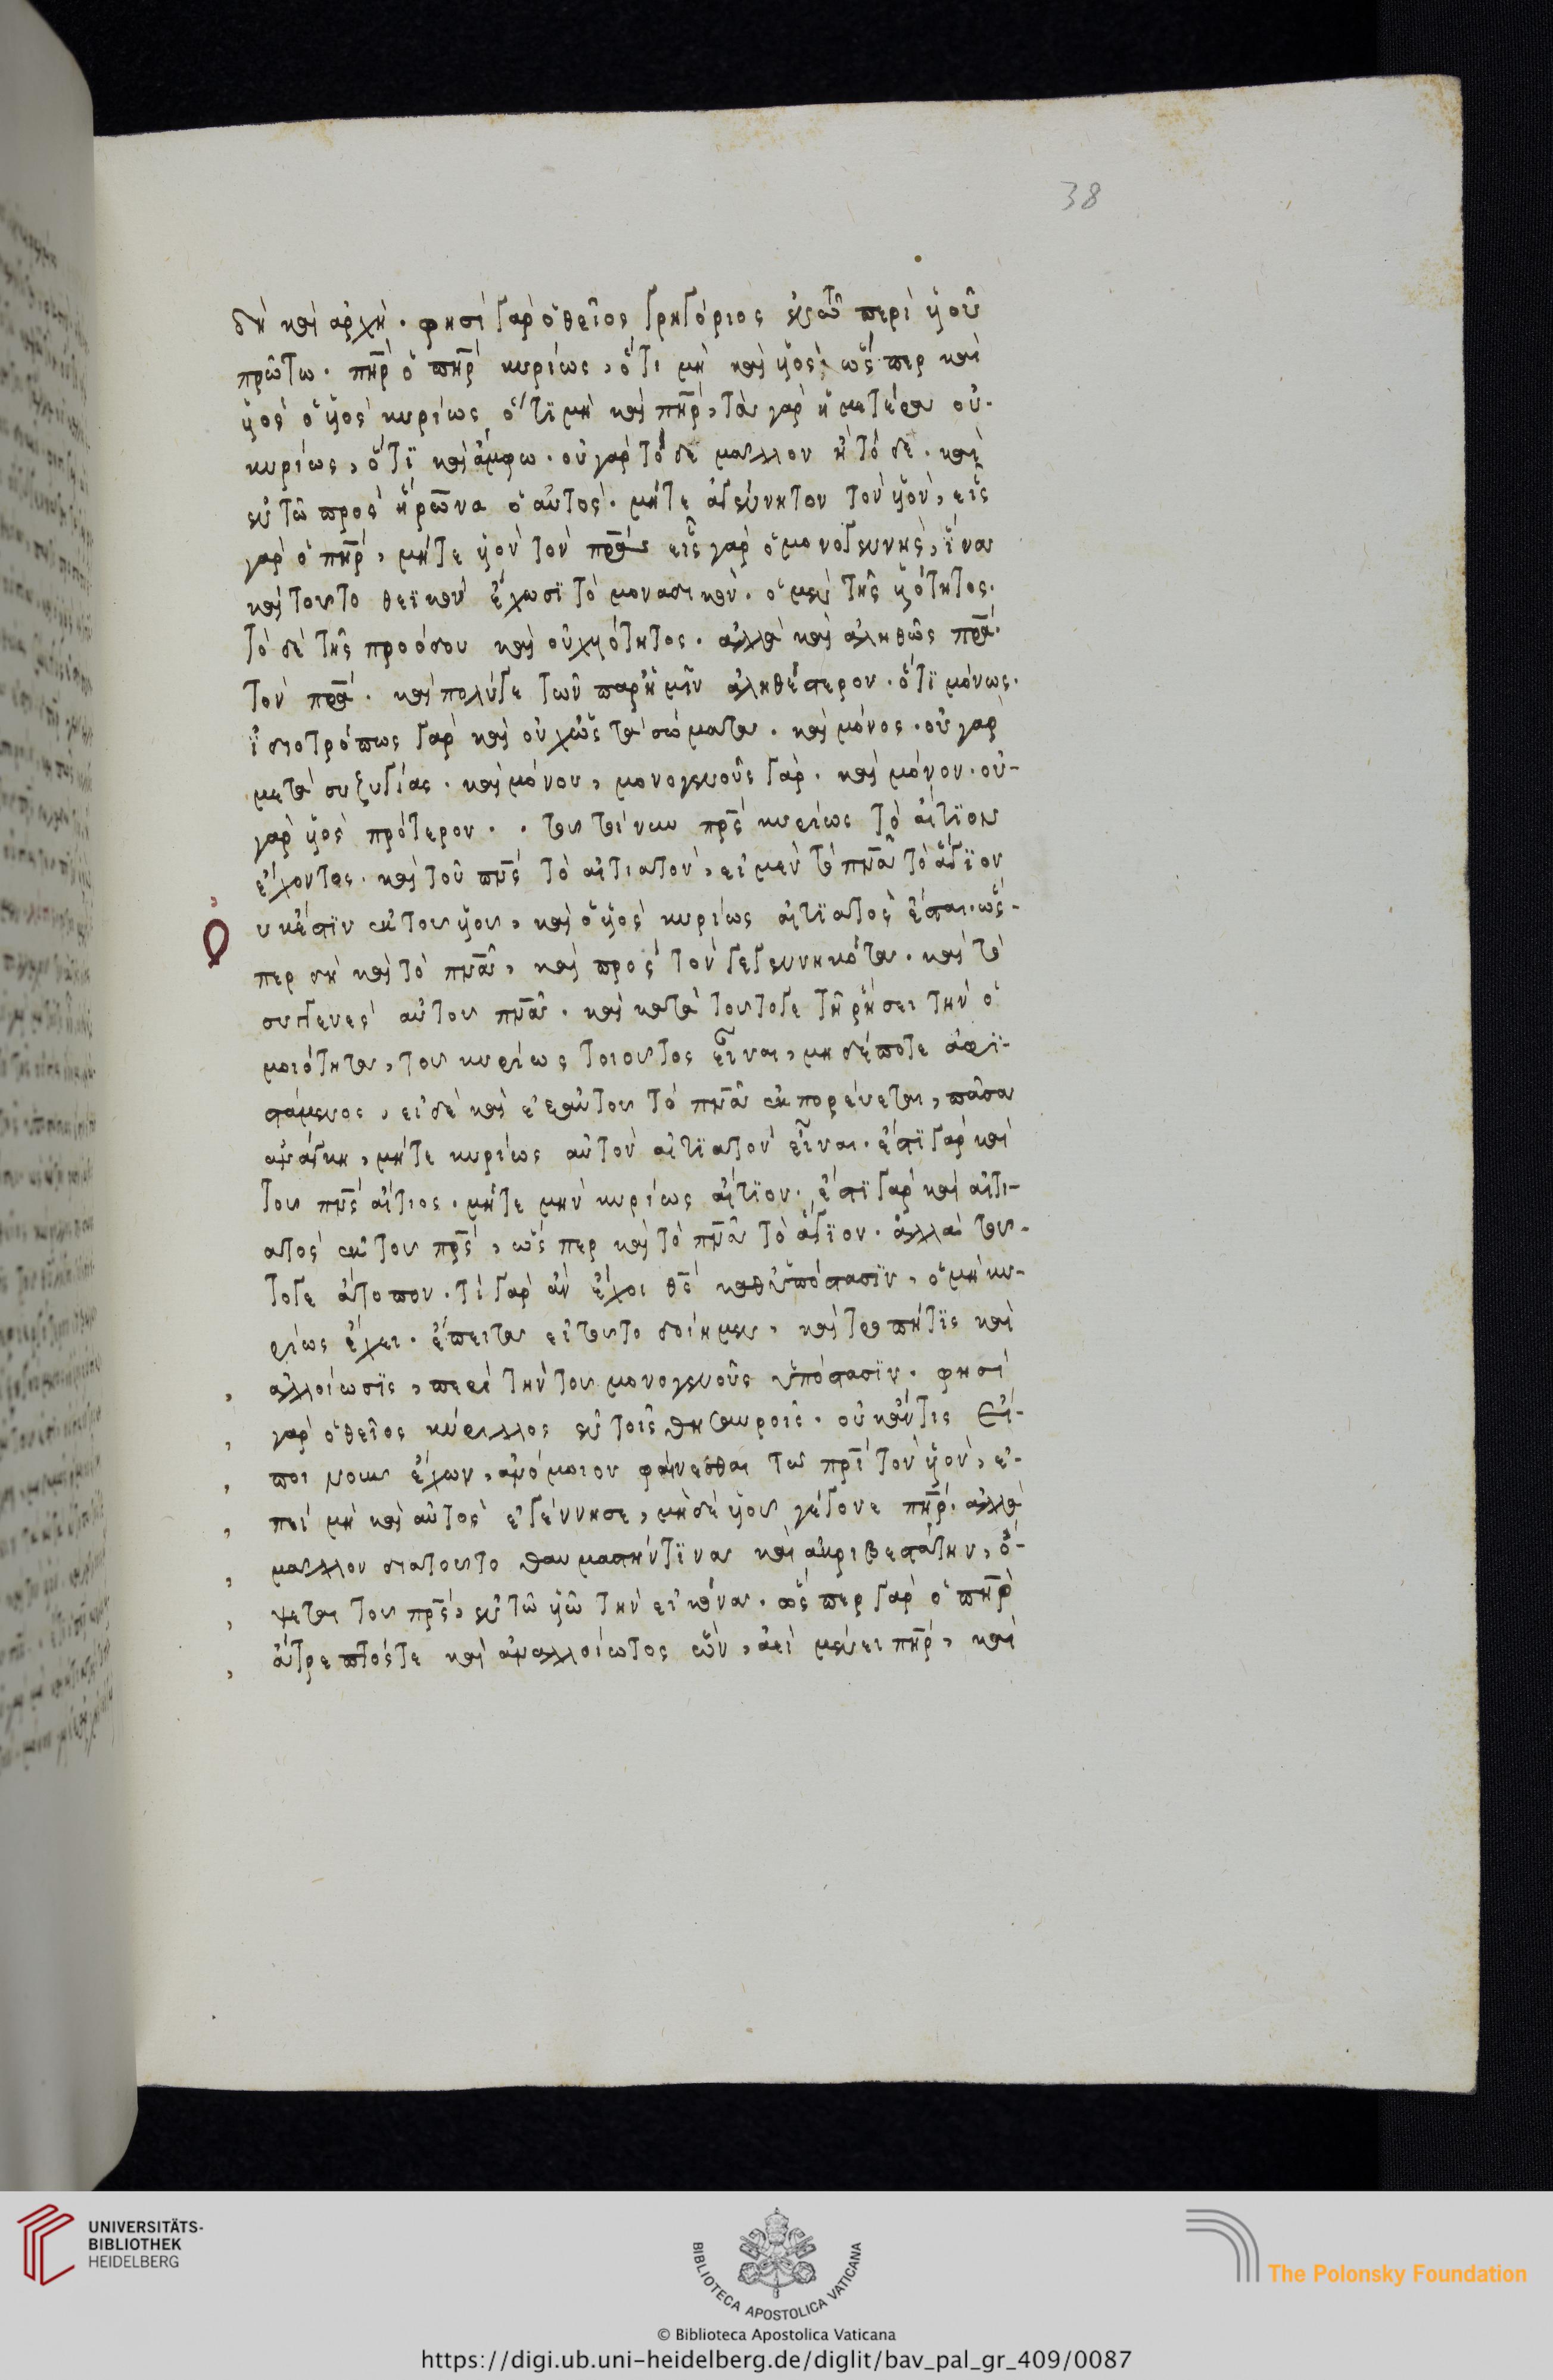 38
δὴ καὶ ἀρχή. φησὶ γὰρ ὁ θεῖος γρηγόριος ἐν τῶ περὶ υἱοῦ
πρώτω. πηρ ὁ πηρ κυρίως, ὅτι μὴ καὶ υἱὸς, ὥσπερ καὶ
υἱὸς ὁ υἱὸς κυρίως ὅτι μὴ καὶ πηρ, τὰ γὰρ ἡμέτερα οὐ
κυρίως, ὅτι καὶ ἄμφω. οὐ γὰρ τόδε μᾶλλον ἢ τόδε. καὶ
ἐν τῶ πρὸς ἥρωνα ὁ αὐτός. μήτε ἀγέννητον τὸν υἱὸν, εἷς
γὰρ ὁ πηρ, μήτε υἱὸν τὸν πρα εἷς γὰρ ὁ μονογενὴς, ἵνα
καὶ τοῦτο θεϊκὸν ἔχωσι τὸ μοναδικόν. ὁ μὲν τῆς υἱότητος.
τὸ δὲ τῆς προόδου καὶ οὐχ υἱότητος. ἀλλὰ καὶ ἀληθῶς πρα.
τὸν πρα. καὶ πολύγε τῶν παρ ἡμῖν ἀληθέστερον. ὅτι μόνως.
ἰδιοτρόπως γὰρ καὶ οὐχ ὡς τὰ σώματα. καὶ μόνος. οὐ γὰρ
μετὰ συζυγίας. καὶ μόνου, μονογενοῦς γάρ. καὶ μόνον. οὐ-
γὰρ υἱὸς πρότερον. . τουτοίνυν πρς κυρίως τὸ αἴτιον
ἔχοντος. καὶ τοῦ πνς τὸ αἰτιατὸν, εἰ μὲν τὸ πνα τὸ ἅγιον
οὐκ ἔστιν ἐκ τοῦ υἱοῦ, καὶ ὁ υἱὸς κυρίως αἰτιατὸς ἔσται. ὥσ-
περ δὴ καὶ τὸ πνα, καὶ πρὸς τὸν γεγεννηκότα. καὶ τὸ
συγγενὲς αὐτοῦ πνα. καὶ κατὰ τοῦτογε τηρήσει τὴν ὁ
μοιότητα, τοῦ κυρίως τοιοῦτος εἶναι, μηδέποτε ἀφι-
στάμενος, εἰ δὲ καὶ ἐξ αὐτοῦ τὸ πνα ἐκπορεύεται, πᾶσα
ἀνάγκη, μήτε κυρίως αὐτὸν αἰτιατὸν εἶναι. ἔστι γὰρ καὶ
τοῦ πνς αἴτιος. μήτε μὴν κυρίως αἴτιον. ἔστι γὰρ καὶ αἰτι-
ατὸς ἐκ τοῦ πρς, ὥσπερ καὶ τὸ πνα τὸ ἅγιον. ἀλλὰ τοῦ-
τογε ἄτοπον. τί γὰρ ἂν ἔχοι θς καθυπόστασιν, ὃ μὴ κυ-
ρίως ἔχει. ἔπειτα εἰ τοῦτο δοίημεν, καὶ τροπή τις καὶ
ἀλλοίωσις, περὶ τὴν τοῦ μονογενοῦς ὑπόστασιν. φησὶ
γὰρ ὁ θεῖος κύριλλος ἐν τοῖς θησαυροῖς. οὐκ ἄν τις εἴ-
ποι νοῦν ἔχων, ἀνόμοιον φαίνεσθαι τῶ πρι τὸν υἱὸν, ἐ-
πεὶ μὴ καὶ αὐτὸς ἐγέννησε, μηδὲ υἱοῦ γέγονε πηρ. ἀλλὰ
μᾶλλον διατοῦτο θαυμαστήν τινα καὶ ἀκριβεστάτην, ὄ-
ψεται τοῦ πρς, ἐν τῶ υἱῶ τὴν εἰκόνα. ὥσπερ γὰρ ὁ πηρ
ἄτρεπτός τε καὶ ἀναλλοίωτος ὢν, ἀεὶ μένει πηρ, καὶ
UNIVERSITÄTS-
BIBLIOTHEK
HEIDELBERG
BIBLIOTECA APOSTOLICA VATICANA
The Polonsky Foundation
© Biblioteca Apostolica Vaticana
https://digi.ub.uni-heidelberg.de/diglit/bav_pal_gr_409/0087